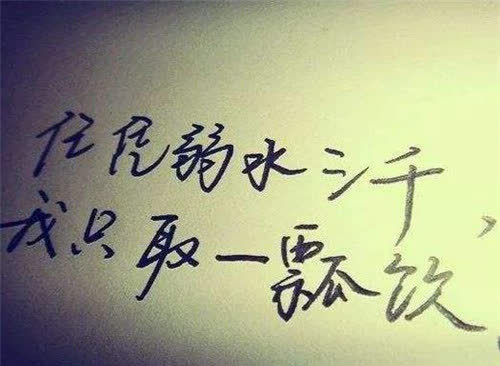 任凭弱水三千,
我只取一瓢饮